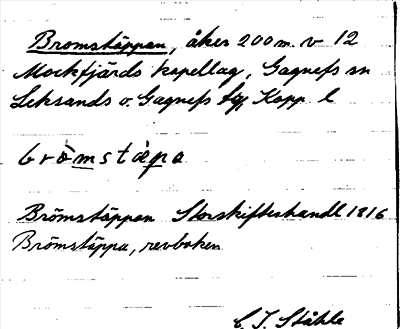 Bromstäppan, åker 200 m. v 12
Mockfjärds kapellag, Gagnefs sn
Leksands o. Gagnefs tgl, Kopp. l
bròmstàpa
Brömstäppan Storskifteshandl 1816
Brömstäppa, revboken
C. I. Ståhle